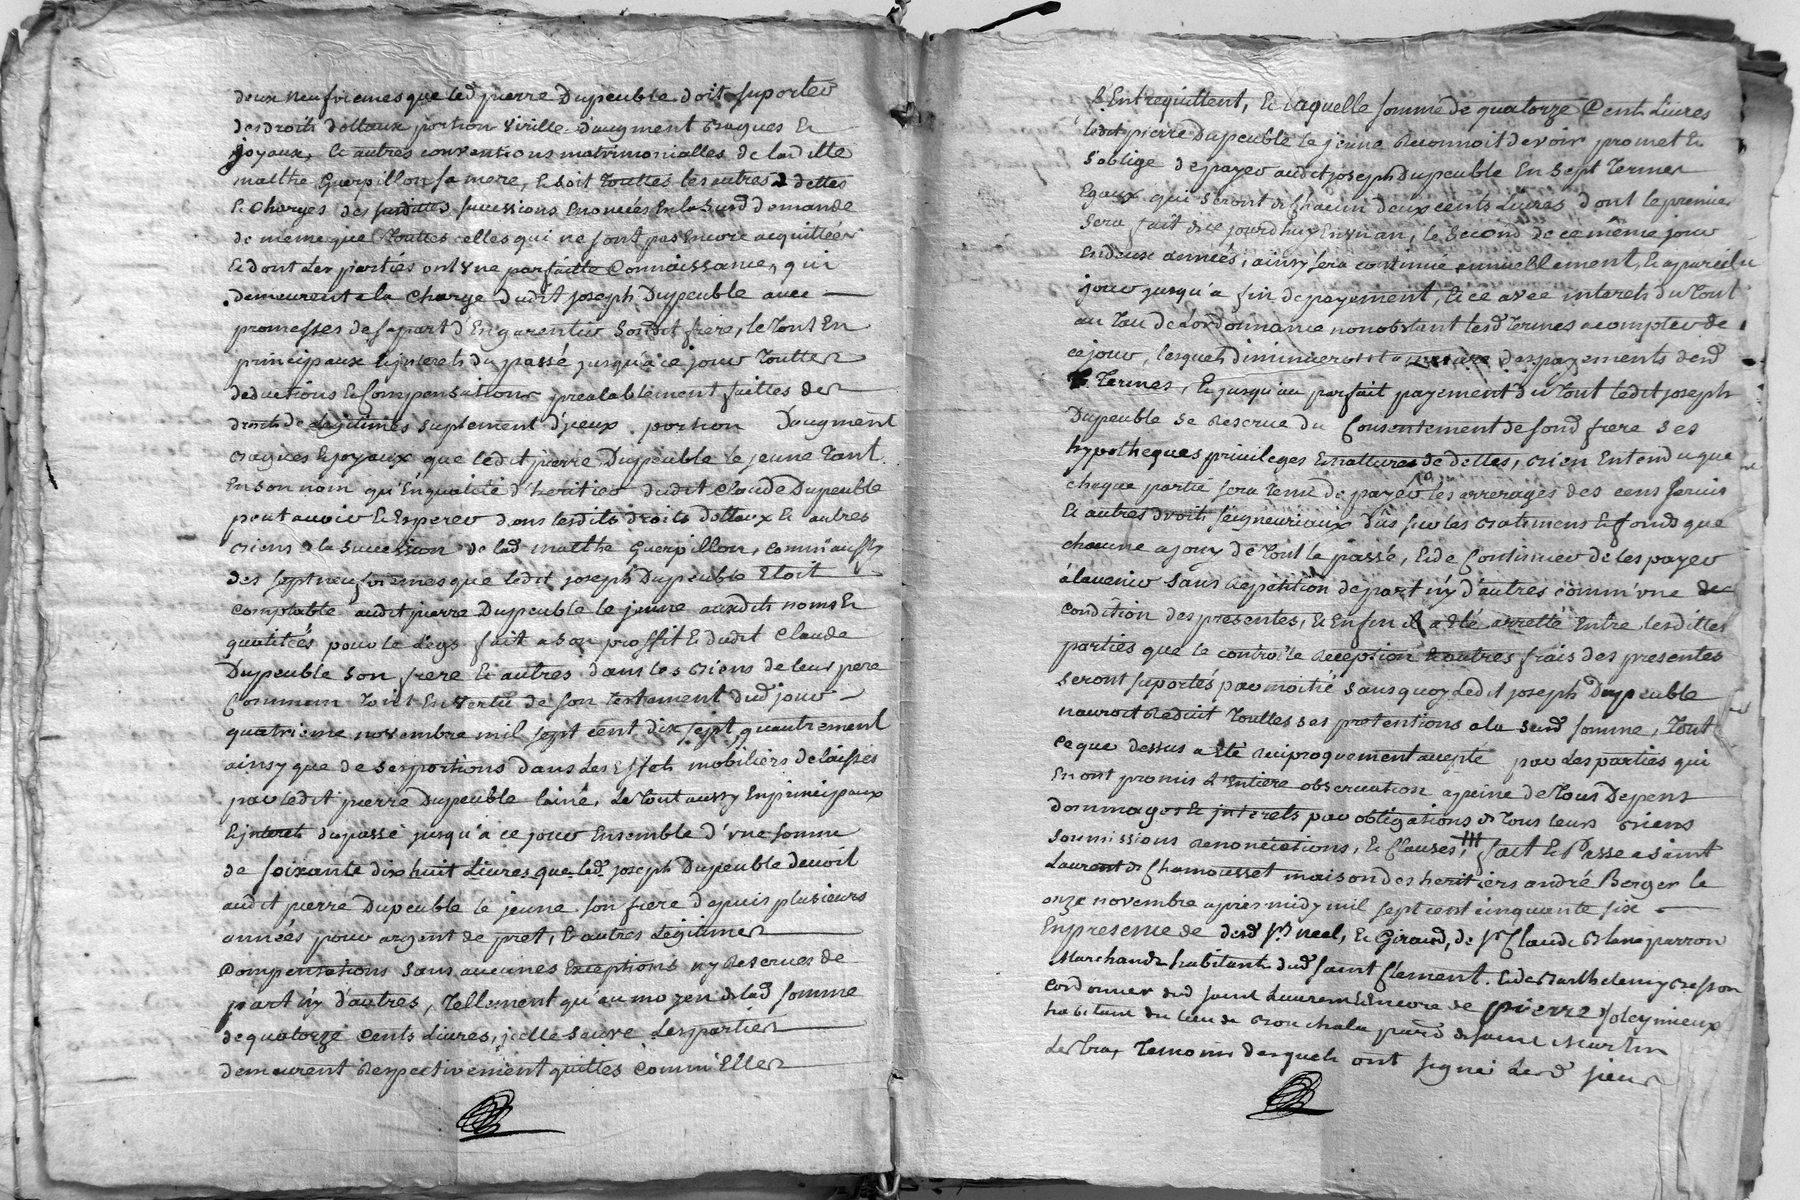 deux neufviemes que led pierre Dupeuble doit suporter
des droits dottaux portion virille d'augment bagues et
joyaux, et autres conventions matrimonialles de laditte
malthe Guerpillon sa mere, et soit touttes les autres dettes
et charges des susdittes successions enoncées en la susd demande
de meme que touttes celles qui ne sont pas encore acquittées
et dont les partiés ont une parfaitte connoissance, qui
demeurent a la charge dudit joseph Dupeuble avec
promesses de sa part d'en garentir sondit frere, le tout en
principaux et interets du passé jusqu'a ce jour touttes
deductions et compensations prealablement faittes des
droits de legitimes suplement d'jceux portion Daugment
bagues et joyaux que ledit pierre Dupeuble le jeune tant
en son nom qu'en qualité d'heritier dudit Claude Dupeuble
peut avoir et esperer dans lesdits droits dottaux et autres
biens de la succession de lad malthe Guerpillon, comm'aussy
des sept neufviemes que ledit joseph Dupeuble etoit
comptable audit pierre Dupeuble le jeune auxdits noms et
qualittés pour le legs fait a son proffit et dudit Claude
Dupeuble son frere et autres dans les biens de leur pere
commun tout en vertu de son testament dud jour
quatrieme novembre mil sept cent dix sept, quautrement
ainsy que de ses portions dans les effets mobiliers delaissés
par ledit pierre Dupeuble lainé, le tout aussy en principaux
et interets du passé jusqu'a ce jour ensemble d'une somme
de soixante dix huit Livres que led joseph Dupeuble devoit
audit pierre Dupeuble le jeune son frere depuis plusieurs
années pour argent de pret, et autres legitimes
compensations sans aucunes exceptions ny reserves de
part n'y d'autres, tellement qu'au moyen de lad somme
de quatorze cents Livres, jcelle sauve les parties
demeurent respectivement quittes comm'elles
s'entrequittent, et laquelle somme de quatorze cents Livres
ledit pierre Dupeuble le jeune reconnoit devoir promet et
s'oblige de payer audit joseph Dupeuble en sept termes
egaux qui seront de chacun deux cents Livres dont le premier
sera fait de ce jourd'huy en un an, le second de ce même jour
en deux années, ainsy sera continué annuellement, et a pareil
jour jusqu'a fin de payement, et ce avec interets du tout
au tau de l'ordonnance nonobstant lesd termes a compter de
ce jour, lesquels diminueront a mesure des payements desd
termes, et jusqu'au parfait payement du tout ledit joseph
Dupeuble se reserve du consentement de sond frere ses
hypotheques privileges et nattures de dettes, bien entendu que
chaque partié sera tenu de payer les arrerages des cens servis
et autres droits seigneuriaux dûs sur les batimens et fonds que
chacune a jouy de tout le passé, et de continuer de les payer
à l'avenir sans repetition de part n'y d'autres comm'une
condition des presentes, et enfin il a eté arretté entre lesdittes
parties que le controle reception et autres frais des presentes
seront suportés par moitié sans quoy ledit joseph Dupeuble
n'auroit reduit touttes ses pretentions a la susd somme, tout
ce que dessus a eté reciproquement accepté par les parties qui
en ont promis l'entiere observation a peine de tous Depens
dommages et interets par obligations de tous leurs biens
soumissions renonciations, et clauses, fait et Passé a saint
Laurent de Chamousset maison des heritiers andré Berger le
onze novembre apres midy mil sept cent cinquante six
En presence de desd srs neel, et Giraud, de sr Claude Blanc parron
Marchand habitant dud saint Clement et de Barthelemy Besson
cordonnier dud saint Laurent et encore de pierre Joleymieux
habitant du lieu de Bronchala parse de saint Martin
Temoins desquels ont signé lesd sieurs